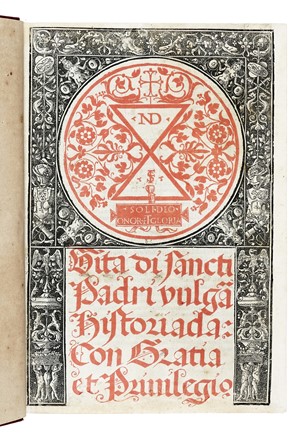 ND
SOLI DEO
ONOR ET GLORIA
Vita di sancti
Padri vulgā
historiada:
Con Gratia
et Privilegio